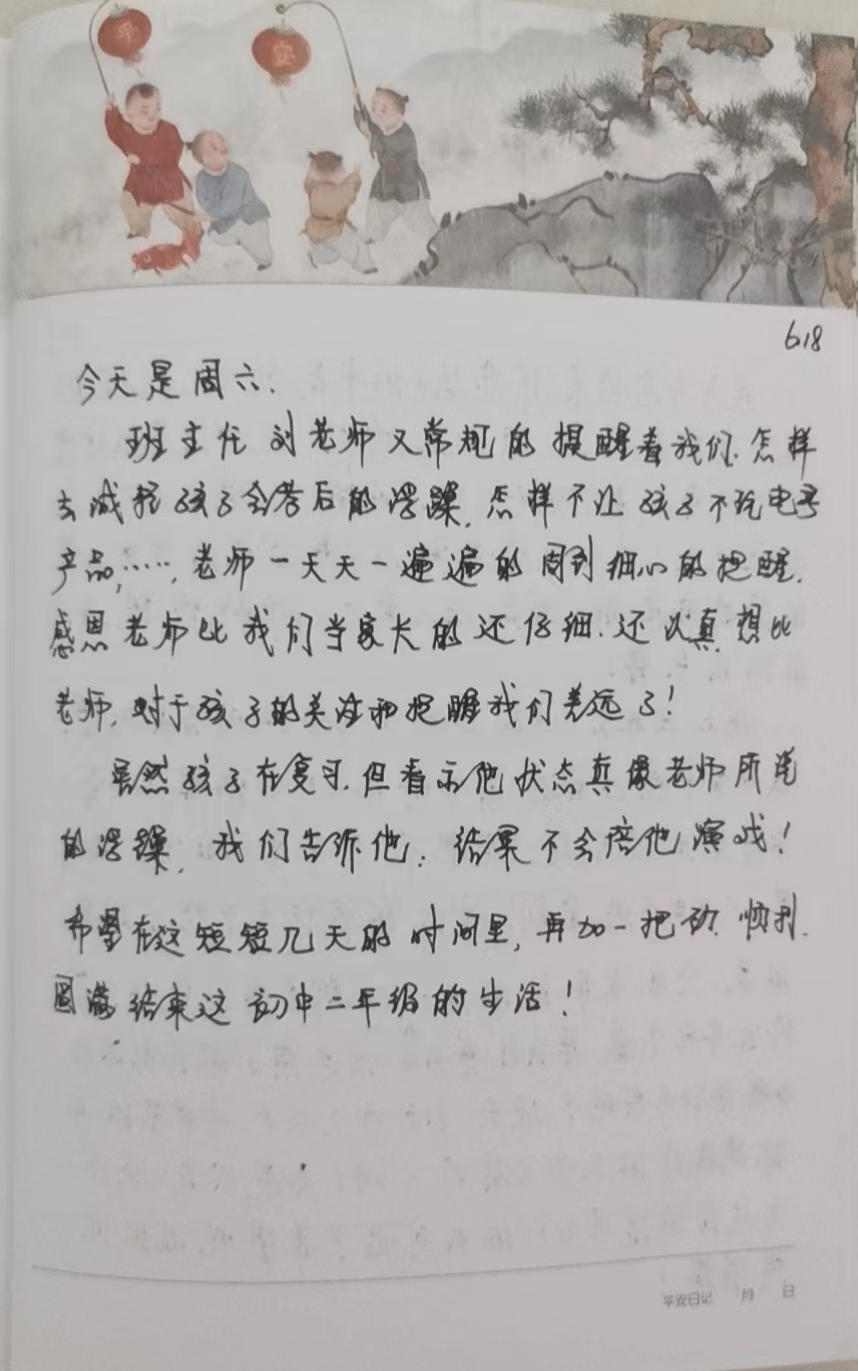 平
安
6.18
今天是周六.
班主任刘老师又常规的提醒着我们.怎样
去减轻孩子会考后的浮躁,怎样不让孩子不玩电子
产品,……,老师一天天一遍遍的周到细心的提醒.
感恩老师比我们当家长的还仔细.还认真想比
老师,对于孩子的关注和提醒我们差远了!
虽然孩子在复习.但看示他状态真像老师所说
的浮躁,我们告诉他:结果不会陪他演戏!
希望在这短短几天的时间里,再加一把劲.顺利.
圆满结束这初中二年级的生活!
平安日记 月 日